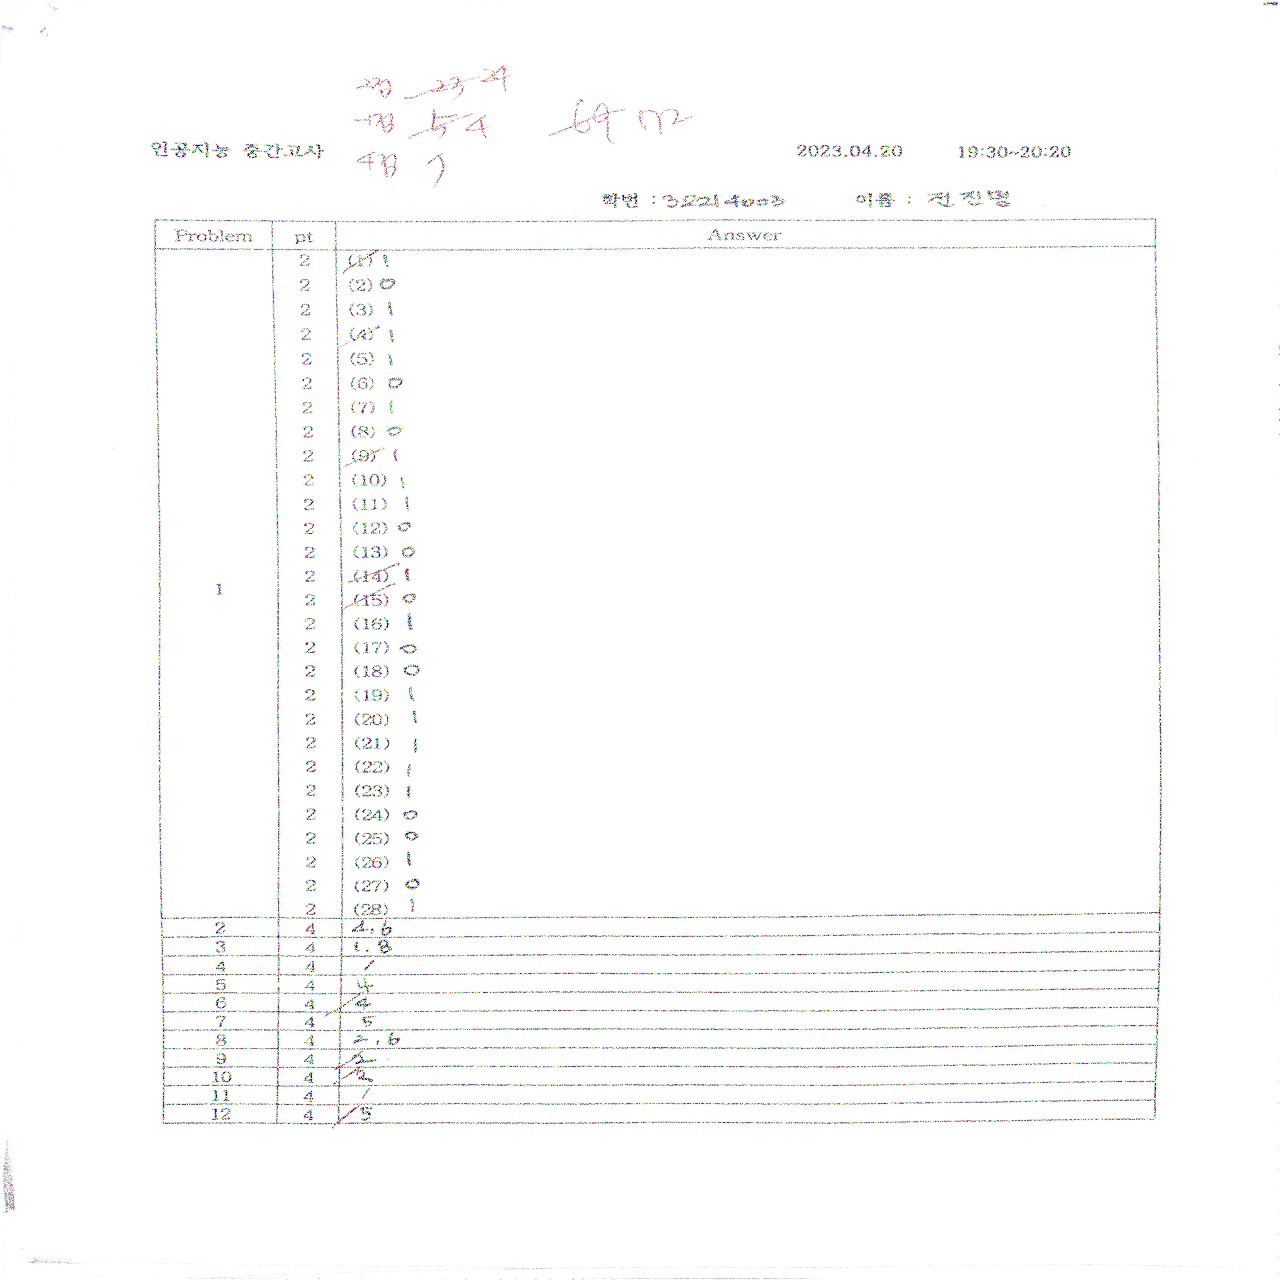 2점 23 24
4점 5 4 69 m2
인공지능 중간고사 4점 7 2023.04.20 19:30~20:20
학번 : 32214003 이름 : 전진명
Problem pt Answer
1
2 (1) 1
2 (2) 0
2 (3) 1
2 (4) 1
2 (5) 1
2 (6) 0
2 (7) 1
2 (8) 0
2 (9) 1
2 (10) 1
2 (11) 1
2 (12) 0
2 (13) 0
2 (14) 1
2 (15) 0
2 (16) 1
2 (17) 0
2 (18) 0
2 (19) 1
2 (20) 1
2 (21) 1
2 (22) 1
2 (23) 1
2 (24) 0
2 (25) 0
2 (26) 1
2 (27) 0
2 (28) 1
2 4 4.6
3 4 1.8
4 4 1
5 4 4
6 4 4
7 4 5
8 4 2.6
9 4 2
10 4 2
11 4 1
12 4 5